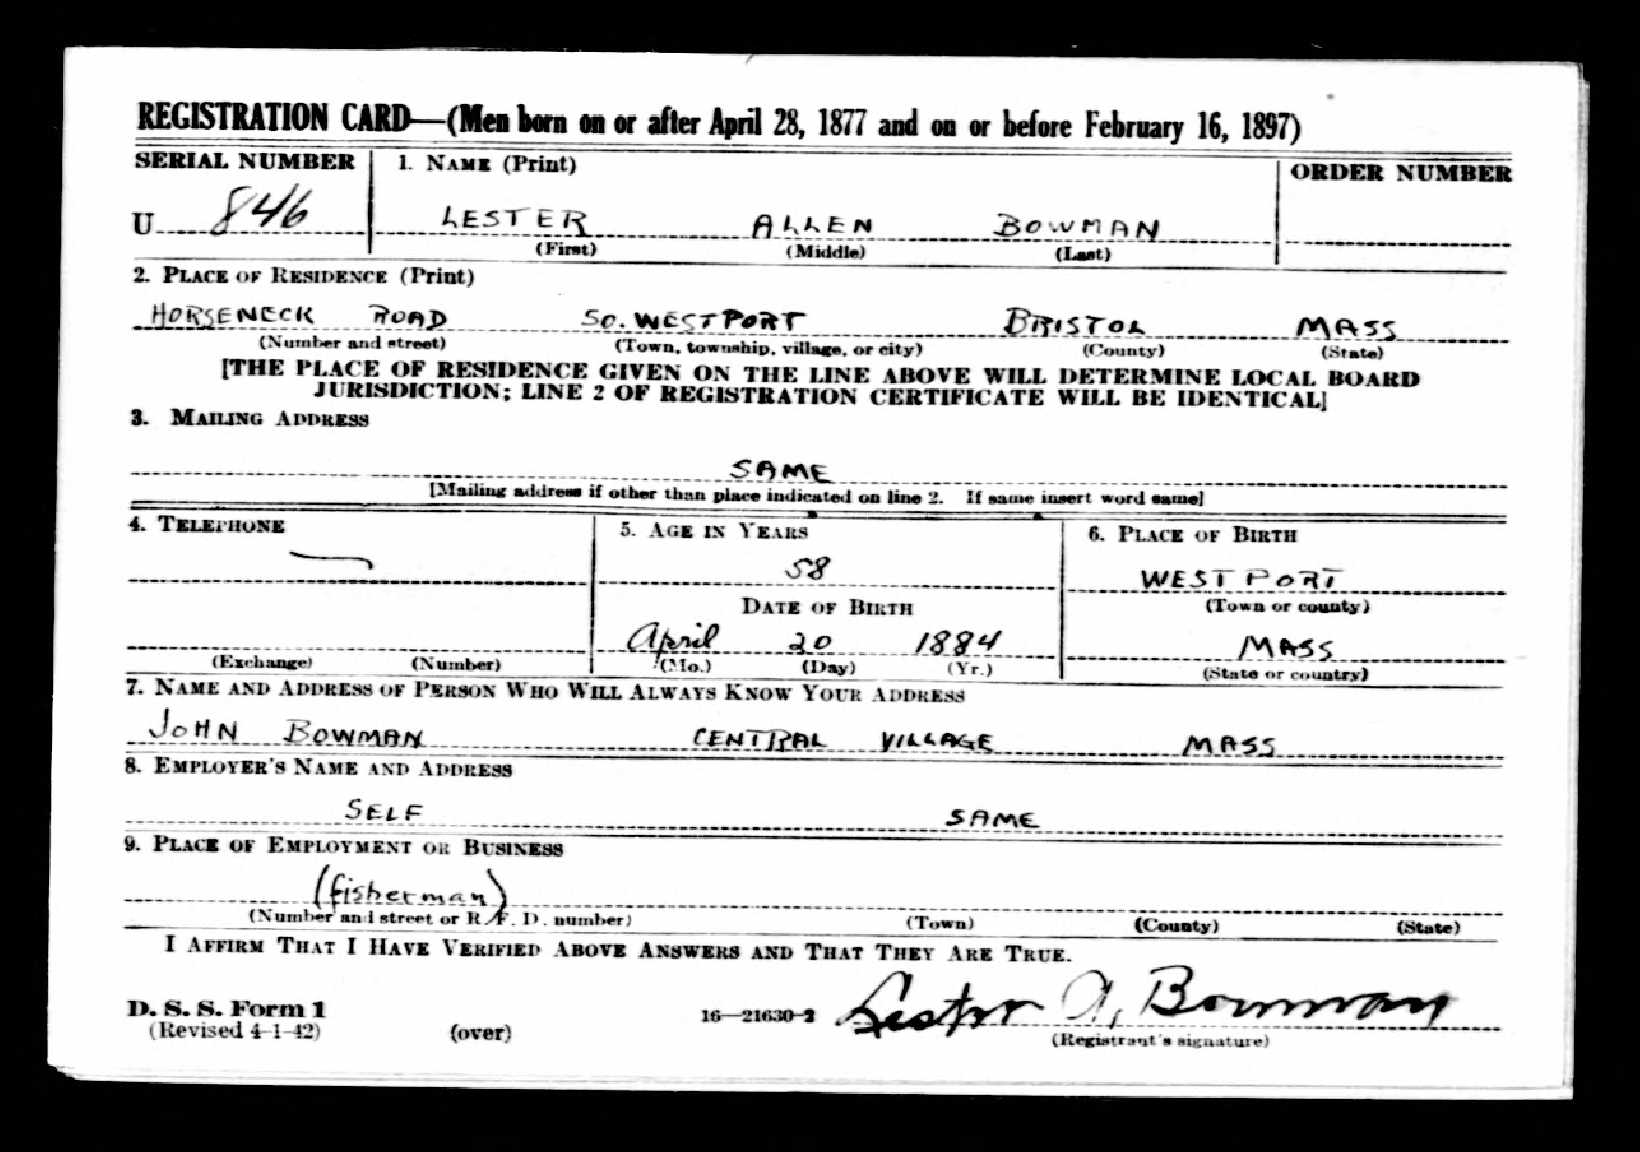 REGISTRATION CARD—(Men born on or after April 28, 1877 and on or before February 16, 1897)
SERIAL NUMBER 1. NAME (Print) ORDER NUMBER
U 846 LESTER ALLEN BOWMAN
(First) (Middle) (Last)
2. PLACE OF RESIDENCE (Print)
HORSENECK ROAD SO. WESTPORT BRISTOL MASS
(Number and street) (Town, township, village, or city) (County) (State)
[THE PLACE OF RESIDENCE GIVEN ON THE LINE ABOVE WILL DETERMINE LOCAL BOARD
JURISDICTION; LINE 2 OF REGISTRATION CERTIFICATE WILL BE IDENTICAL]
3. MAILING ADDRESS
SAME
[Mailing address if other than place indicated on line 2. If same insert word same]
4. TELEPHONE 5. AGE IN YEARS 6. PLACE OF BIRTH
58 WESTPORT
DATE OF BIRTH (Town or county)
April 20 1884 MASS
(Exchange) (Number) (Mo.) (Day) (Yr.) (State or country)
7. NAME AND ADDRESS OF PERSON WHO WILL ALWAYS KNOW YOUR ADDRESS
JOHN BOWMAN CENTRAL VILLAGE MASS
8. EMPLOYER'S NAME AND ADDRESS
SELF SAME
9. PLACE OF EMPLOYMENT OR BUSINESS
(fisherman)
(Number and street or R. F. D. number) (Town) (County) (State)
I AFFIRM THAT I HAVE VERIFIED ABOVE ANSWERS AND THAT THEY ARE TRUE.
D. S. S. Form 1 16—21630-2 Lester A. Bowman
(Revised 4-1-42) (over) (Registrant's signature)